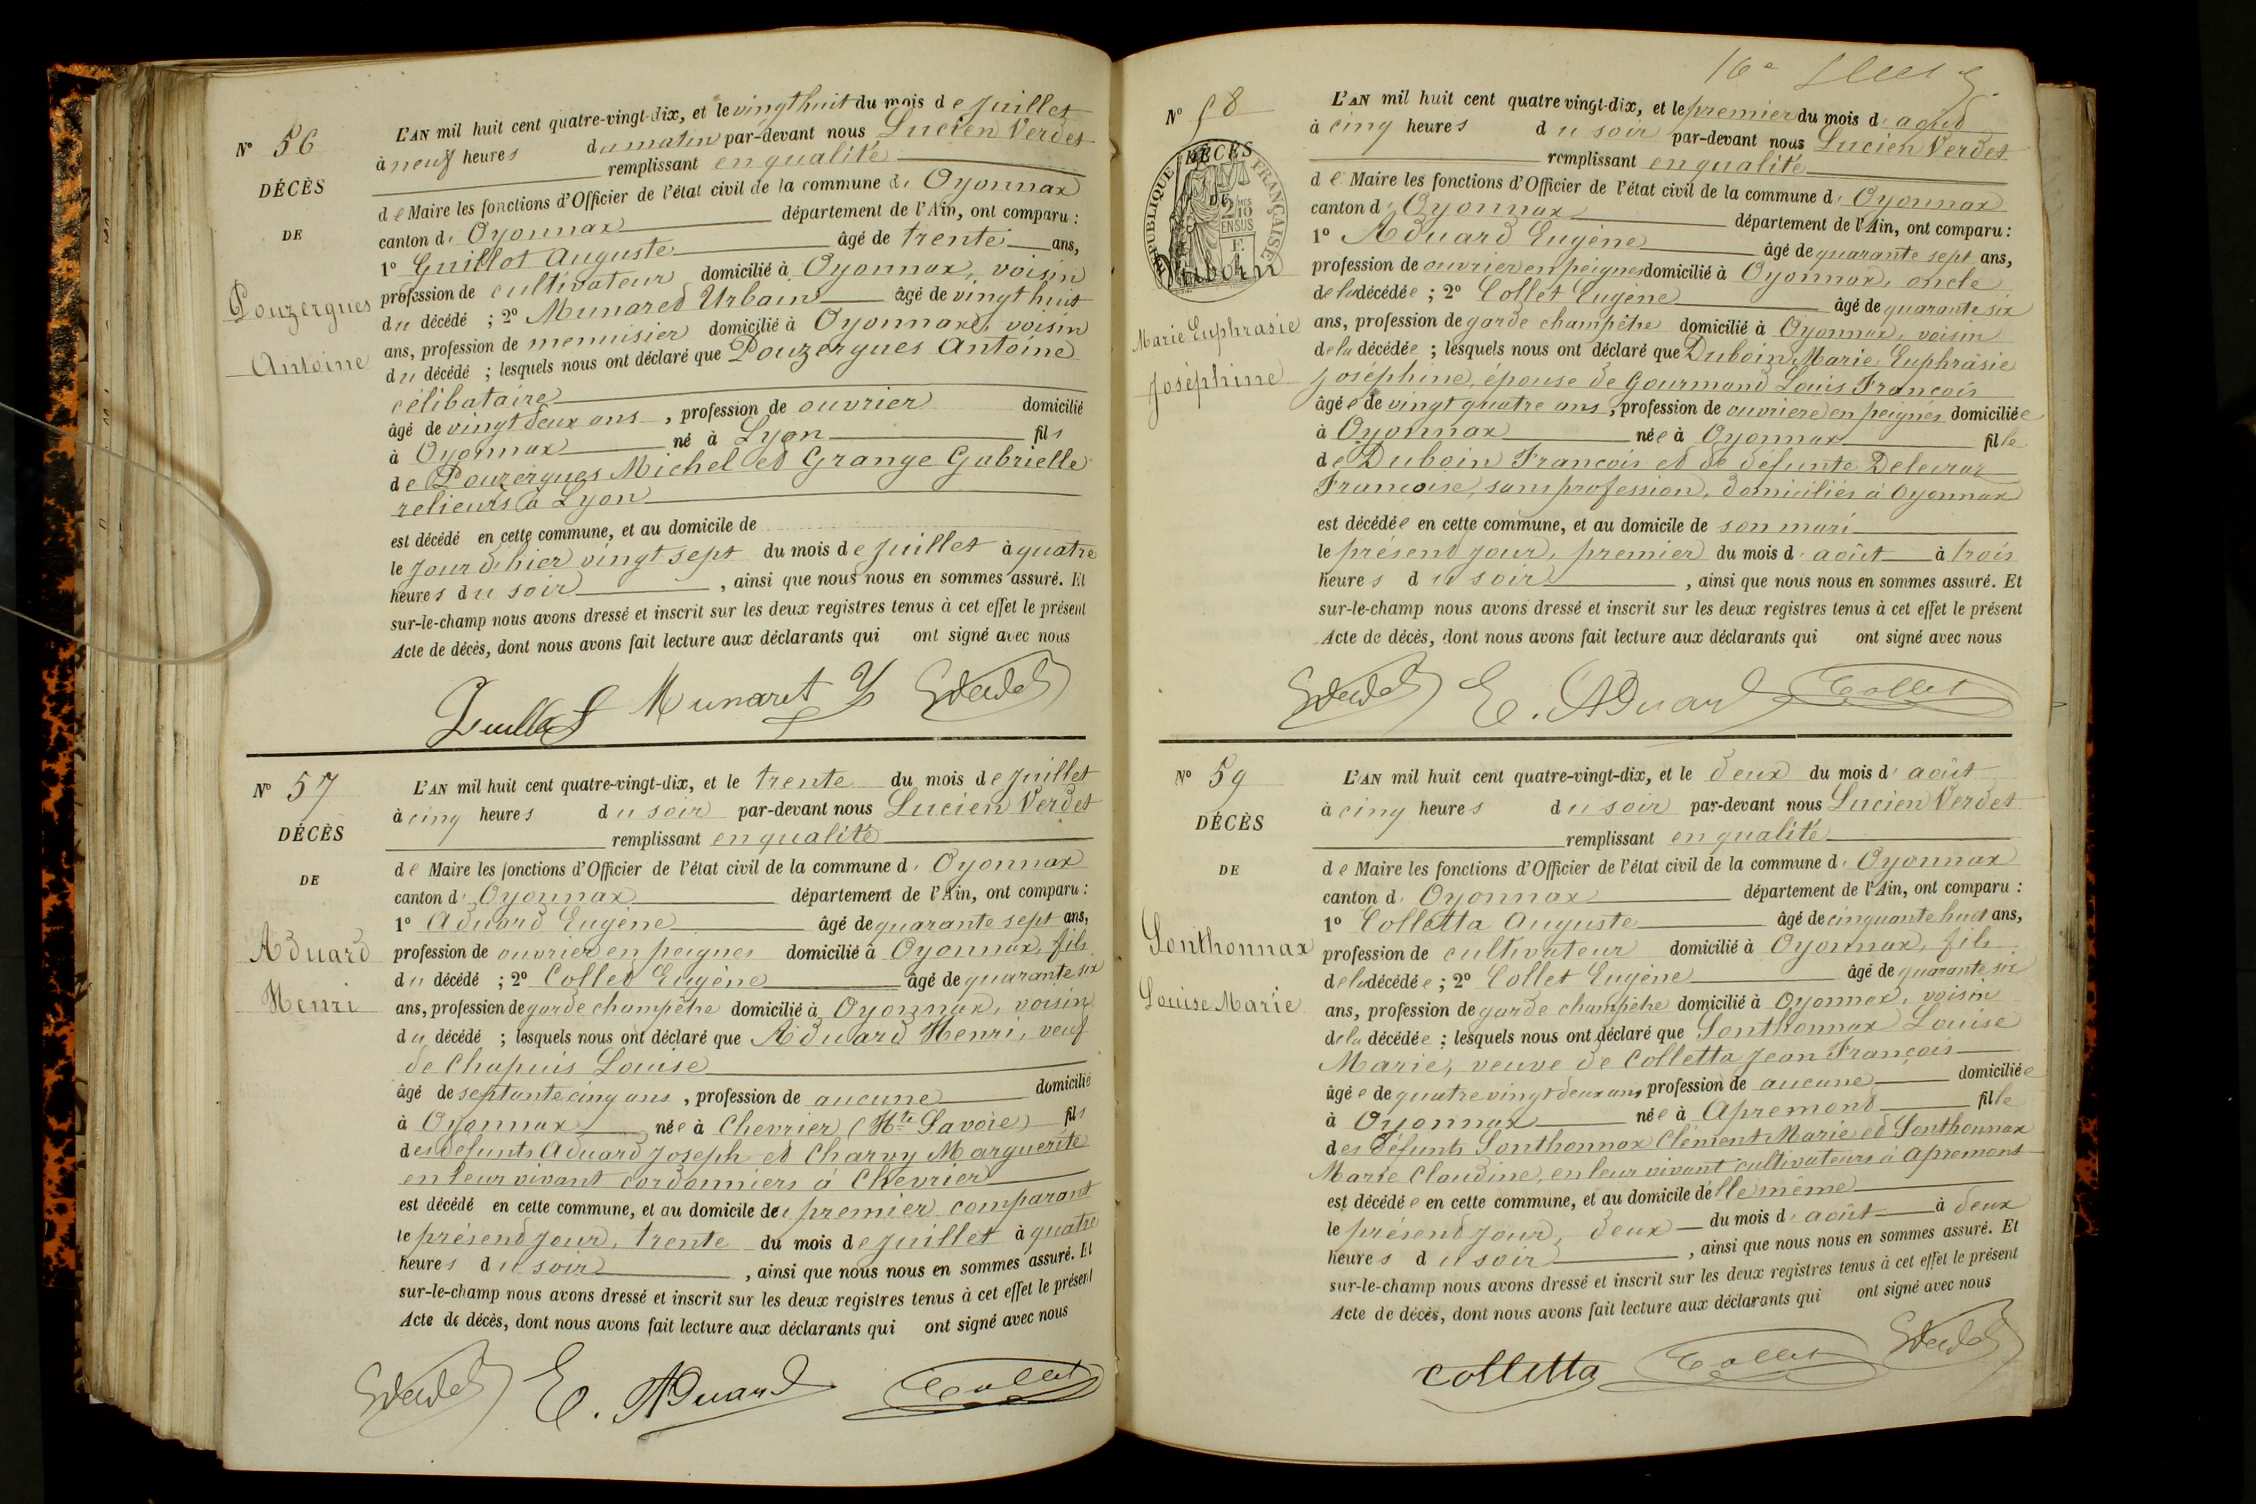 N° 56
DÉCÈS
DE
Pouzergues
Antoine
L'AN mil huit cent quatre-vingt-dix, et le vingt huit du mois de juillet
à neuf heures du matin par-devant nous Lucien Verdet
remplissant en qualité
de Maire les fonctions d'Officier de l'état civil de la commune d' Oyonnax
canton d' Oyonnax département de l'Ain, ont comparu :
1° Guillot Auguste âgé de trente ans,
profession de cultivateur domicilié à Oyonnax, voisin
du décédé ; 2° Munaret Urbain âgé de vingt huit
ans, profession de menuisier domicilié à Oyonnax, voisin
du décédé ; lesquels nous ont déclaré que Pouzergues Antoine
célibataire
âgé de vingt deux ans, profession de ouvrier domicilié
à Oyonnax né à Lyon fils
de Pouzergues Michel et Grange Gabrielle
relieurs à Lyon
est décédé en cette commune, et au domicile de
le jour d'hier vingt sept du mois de juillet à quatre
heures du soir, ainsi que nous nous en sommes assuré. Et
sur-le-champ nous avons dressé et inscrit sur les deux registres tenus à cet effet le présent
Acte de décès, dont nous avons fait lecture aux déclarants qui ont signé avec nous
Munaret
N° 57
DÉCÈS
DE
Aduard
Henri
L'AN mil huit cent quatre-vingt-dix, et le trente du mois de juillet
à cinq heures du soir par-devant nous Lucien Verdet
remplissant en qualité
de Maire les fonctions d'Officier de l'état civil de la commune d' Oyonnax
canton d' Oyonnax département de l'Ain, ont comparu :
1° Aduard Eugène âgé de quarante sept ans,
profession de ouvrier en peignes domicilié à Oyonnax, fils
du décédé ; 2° Collet Eugène âgé de quarante six
ans, profession de garde champêtre domicilié à Oyonnax, voisin
du décédé ; lesquels nous ont déclaré que Aduard Henri, veuf
de Chapuis Louise
âgé de septante cinq ans, profession de aucune domicilié
à Oyonnax née à Chevrier (Hte Savoie) fils
des défunts Aduard Joseph et Charvy Marguerite
en leur vivant cordonniers à Chevrier
est décédé en cette commune, et au domicile deu premier comparant
le présent jour, trente du mois de juillet à quatre
heures du soir, ainsi que nous nous en sommes assuré. Et
sur-le-champ nous avons dressé et inscrit sur les deux registres tenus à cet effet le présent
Acte de décès, dont nous avons fait lecture aux déclarants qui ont signé avec nous
E. Aduard Collet
16e
N° 58
DÉCÈS
DE
RÉPUBLIQUE FRANÇAISE
2/10 EN SUS
Duboin
Marie Euphrasie
Joséphine
L'AN mil huit cent quatre vingt-dix, et le premier du mois d' août
à cinq heures du soir par-devant nous Lucien Verdet
remplissant en qualité
de Maire les fonctions d'Officier de l'état civil de la commune d' Oyonnax
canton d' Oyonnax département de l'Ain, ont comparu :
1° Aduard Eugène âgé de quarante sept ans,
profession de ouvrier en peignes domicilié à Oyonnax, oncle
de la décédée ; 2° Collet Eugène âgé de quarante six
ans, profession de garde champêtre domicilié à Oyonnax, voisin
de la décédée ; lesquels nous ont déclaré que Duboin Marie Euphrasie
Joséphine, épouse de Gourmand Louis François
âgée de vingt quatre ans, profession de ouvrière en peignes domiciliée
à Oyonnax née à Oyonnax fille
de Duboin François et de défunte
Françoise, sans profession, domiciliés à Oyonnax
est décédée en cette commune, et au domicile de son mari
le présent jour, premier du mois d' août à trois
heures du soir, ainsi que nous nous en sommes assuré. Et
sur-le-champ nous avons dressé et inscrit sur les deux registres tenus à cet effet le présent
Acte de décès, dont nous avons fait lecture aux déclarants qui ont signé avec nous
E. Aduard Collet
N° 59
DÉCÈS
DE
Sonthonnax
Louise Marie
L'AN mil huit cent quatre-vingt-dix, et le deux du mois d' août
à cinq heures du soir par-devant nous Lucien Verdet
remplissant en qualité
de Maire les fonctions d'Officier de l'état civil de la commune d' Oyonnax
canton d' Oyonnax département de l'Ain, ont comparu :
1° Colletta Auguste âgé de cinquante huit ans,
profession de cultivateur domicilié à Oyonnax, fils
de la décédée ; 2° Collet Eugène âgé de quarante six
ans, profession de garde champêtre domicilié à Oyonnax, voisin
de la décédée ; lesquels nous ont déclaré que Sonthonnax Louise
Marie, veuve de Colletta Jean François
âgée de quatre vingt deux ans profession de aucune domiciliée
à Oyonnax née à Apremont fille
des défunts Sonthonnax Clément Marie et Sonthonnax
Marie Claudine, en leur vivant cultivateurs à Apremont
est décédée en cette commune, et au domicile d'elle même
le présent jour, deux du mois d' août à deux
heures du soir, ainsi que nous nous en sommes assuré. Et
sur-le-champ nous avons dressé et inscrit sur les deux registres tenus à cet effet le présent
Acte de décès, dont nous avons fait lecture aux déclarants qui ont signé avec nous
Colletta Collet